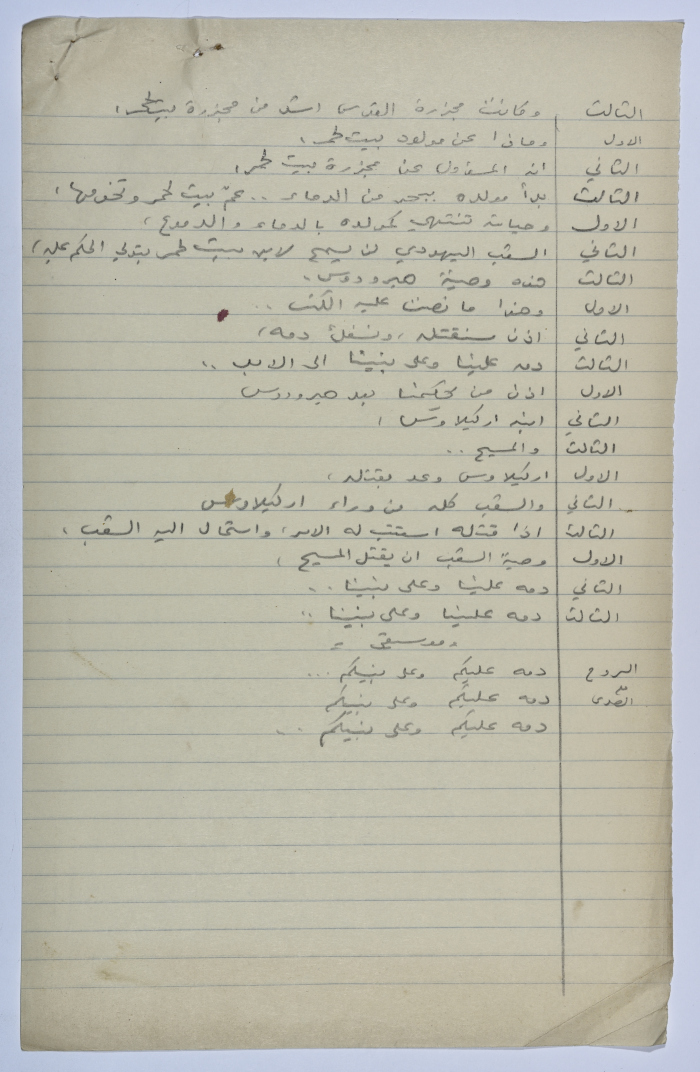 الثالث وكانت مجزرة القدس اشد من مجزرة بيت لحم،
الاول وماذا عن مولود بيت لحم،
الثاني انه المسؤول عن مجزرة بيت لحم،
الثالث بدأ مولده ببحر من الدماء .. عمّ بيت لحم وتخومها،
الاول وحياته تنتهي كمولده بالدماء والدموع،
الثاني الشعب اليهودي لن يسمح لابن بيت لحم بتولي الحكم عليه،
الثالث هذه وصية هيرودوس.
الاول وهذا ما نصت عليه الكتب ..
الثاني اذن سنقتله، ونسفك دمه،
الثالث دمه علينا وعلى بنينا الى الابد ..
الاول اذن من يحكمنا بعد هيرودوس
الثاني ابنه اركيلاوس،
الثالث والمسيح ..
الاول اركيلاوس وعد بقتله،
الثاني والشعب كله من وراء اركيلاوس
الثالث اذا قتله استتب له الامر، واستمال اليه الشعب،
الاول وصية الشعب ان يقتل المسيح،
الثاني دمه علينا وعلى بنينا ..
الثالث دمه علينا وعلى بنينا ..
- موسيقى -
الروح دمه عليكم وعلى بنيكم ...
الصدى دمه عليكم وعلى بنيكم
دمه عليكم وعلى بنيكم ...